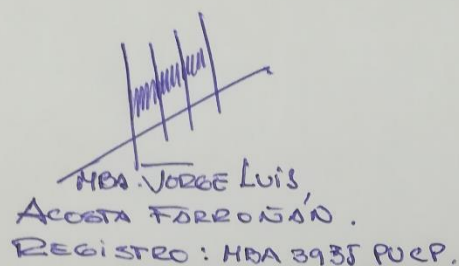 MBA. JORGE LUIS
ACOSTA FARROÑÁN.
REGISTRO: MBA 3935 PUCP.